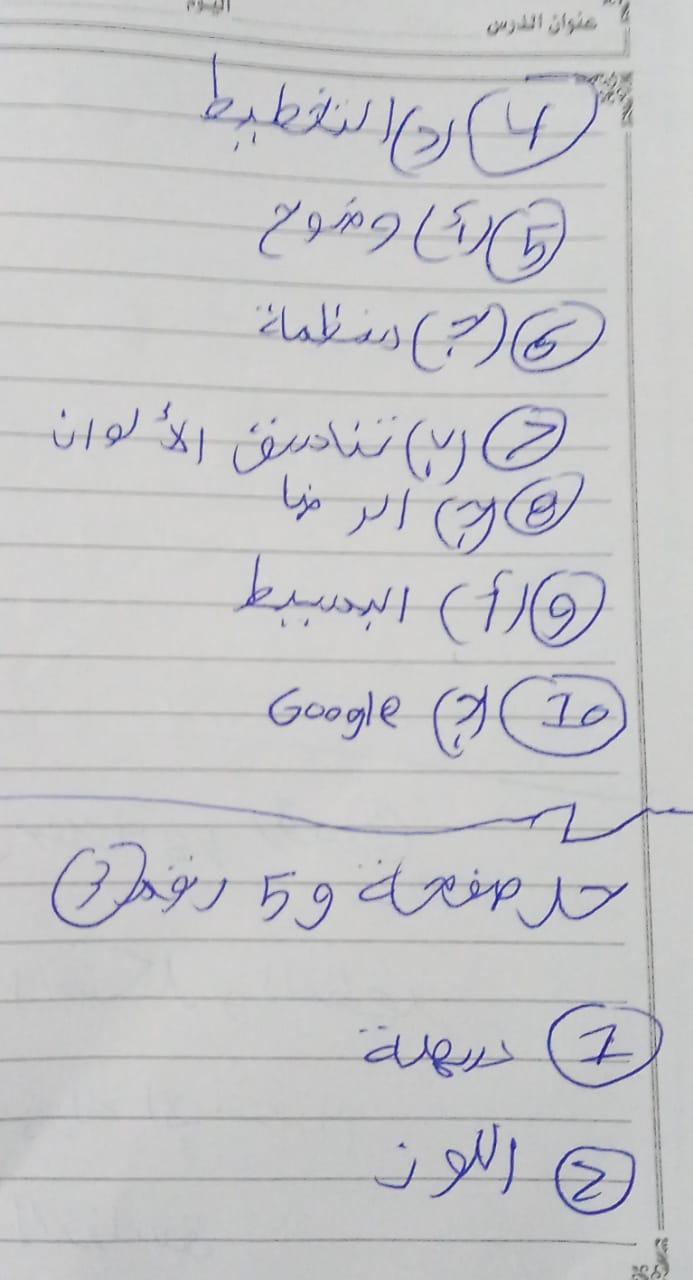 اليوم
عنوان الدرس
4 (د) التخطيط
5 (أ) وضوح
6 (ج) منظمة
7 (ب) تناسق الألوان
8 (ج) الرضا
9 (أ) البسيط
10 (ج) Google
حل صفحة 59
1
2 اللون